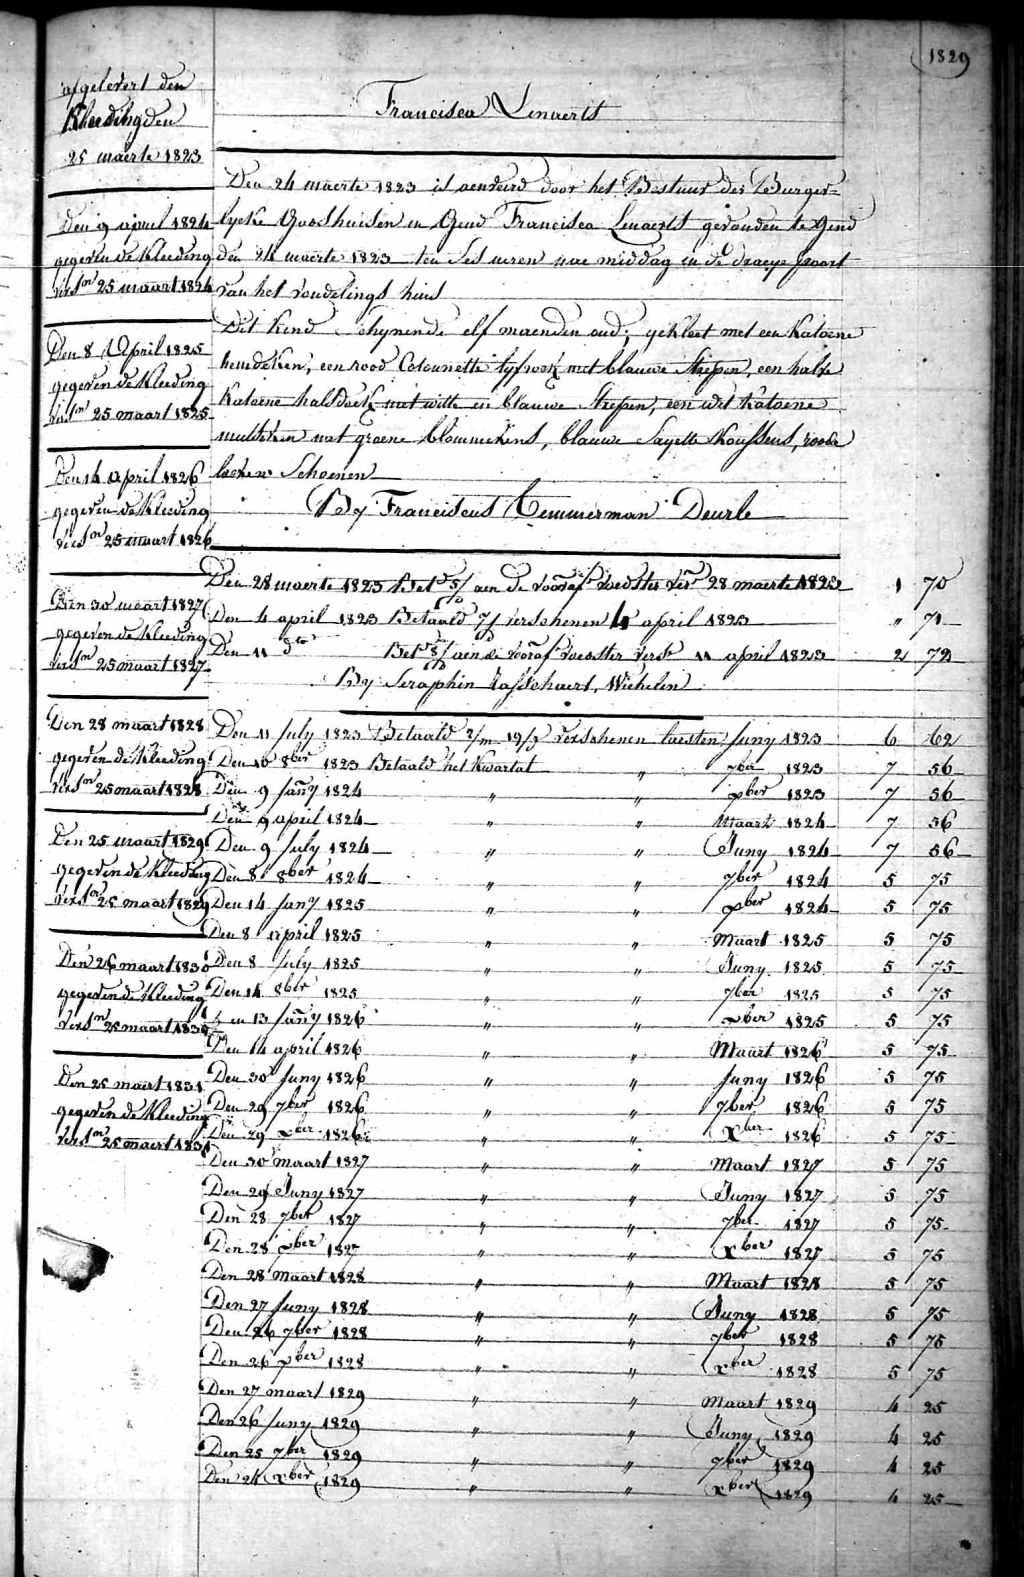 1829
afgelevert den
Kleeding den
25 maerte 1823
Francisca Lenaerts
Den 24 maerte 1823 is aenveird door het Bestuur der Burger=
lycke Godshuisen in Gend Francisca Lenaerts gevonden te Gend
den 24 maerte 1823 ten ses uren nae middag in de draeye poort
van het vondelings huis
Dit kind schynende elf maenden oud; gekleet met een katoene
hemdeken, een rood Cotonnette lyfrock met blauwe strepen, een halve
katoene halsdoek met witte en blauwe strepen, een wit katoene
mutseken met groene blommekens, blauwe sayette koussens, roode
schoenen
By Franciscus Temmerman Deurle
Den 9 april 1824
gegeven de kleeding
versn 25 maart 1824
Den 8 April 1825
gegeven de kleeding
versn 25 maart 1825
Den 14 april 1826
gegeven de kleeding
versn 25 maart 1826
Den 30 maart 1827
gegeven de kleeding
versn 25 maart 1827
Den 28 maart 1828
gegeven de kleeding
versn 25 maart 1828
Den 25 maart 1829
gegeven de kleeding
versn 25 maart 1829
Den 26 maart 1830
gegeven de kleeding
versn 25 maart 1830
Den 25 maert 1831
gegeven de kleeding
versn 25 maert 1831
Den 28 maerte 1823 Bet 5/ aen de vooraf voedster ver 28 maerte 1823 1 70
Den 4 april 1823 Betaald 7/ verschenen 4 april 1823 " 71
Den 11 dto Bet 8/ aen de vooraf voedster verst 11 april 1823 2 72
By Seraphin Wichelen
Den 11 July 1823 Betaald 2/m 19/ verschenen laesten Juny 1823 6 62
Den 10 8ber 1823 Betaald het kwartal " 7ber 1823 7 56
Den 9 Jany 1824 " " xber 1823 7 56
Den 9 april 1824 " " Maart 1824 7 56
Den 9 July 1824 " " Juny 1824 7 56
Den 8 8ber 1824 " " 7ber 1824 5 75
Den 14 Jany 1825 " " xber 1824 5 75
Den 8 april 1825 " " Maart 1825 5 75
Den 8 July 1825 " " Juny 1825 5 75
Den 14 8ber 1825 " " 7ber 1825 5 75
Den 13 Jany 1826 " " xber 1825 5 75
Den 14 april 1826 " " Maart 1826 5 75
Den 30 Juny 1826 " " Juny 1826 5 75
Den 29 7ber 1826 " " 7ber 1826 5 75
Den 29 xber 1826 " " Xber 1826 5 75
Den 30 maart 1827 " " Maart 1827 5 75
Den 29 Juny 1827 " " Juny 1827 5 75
Den 28 7ber 1827 " " 7ber 1827 5 75
Den 28 xber 1827 " " Xber 1827 5 75
Den 28 Maart 1828 " " Maart 1828 5 75
Den 27 Juny 1828 " " Juny 1828 5 75
Den 26 7ber 1828 " " 7ber 1828 5 75
Den 26 xber 1828 " " xber 1828 5 75
Den 27 maart 1829 " " Maart 1829 4 25
Den 26 Juny 1829 " " Juny 1829 4 25
Den 25 7ber 1829 " " 7ber 1829 4 25
Den 24 Xber 1829 " " xber 1829 4 25